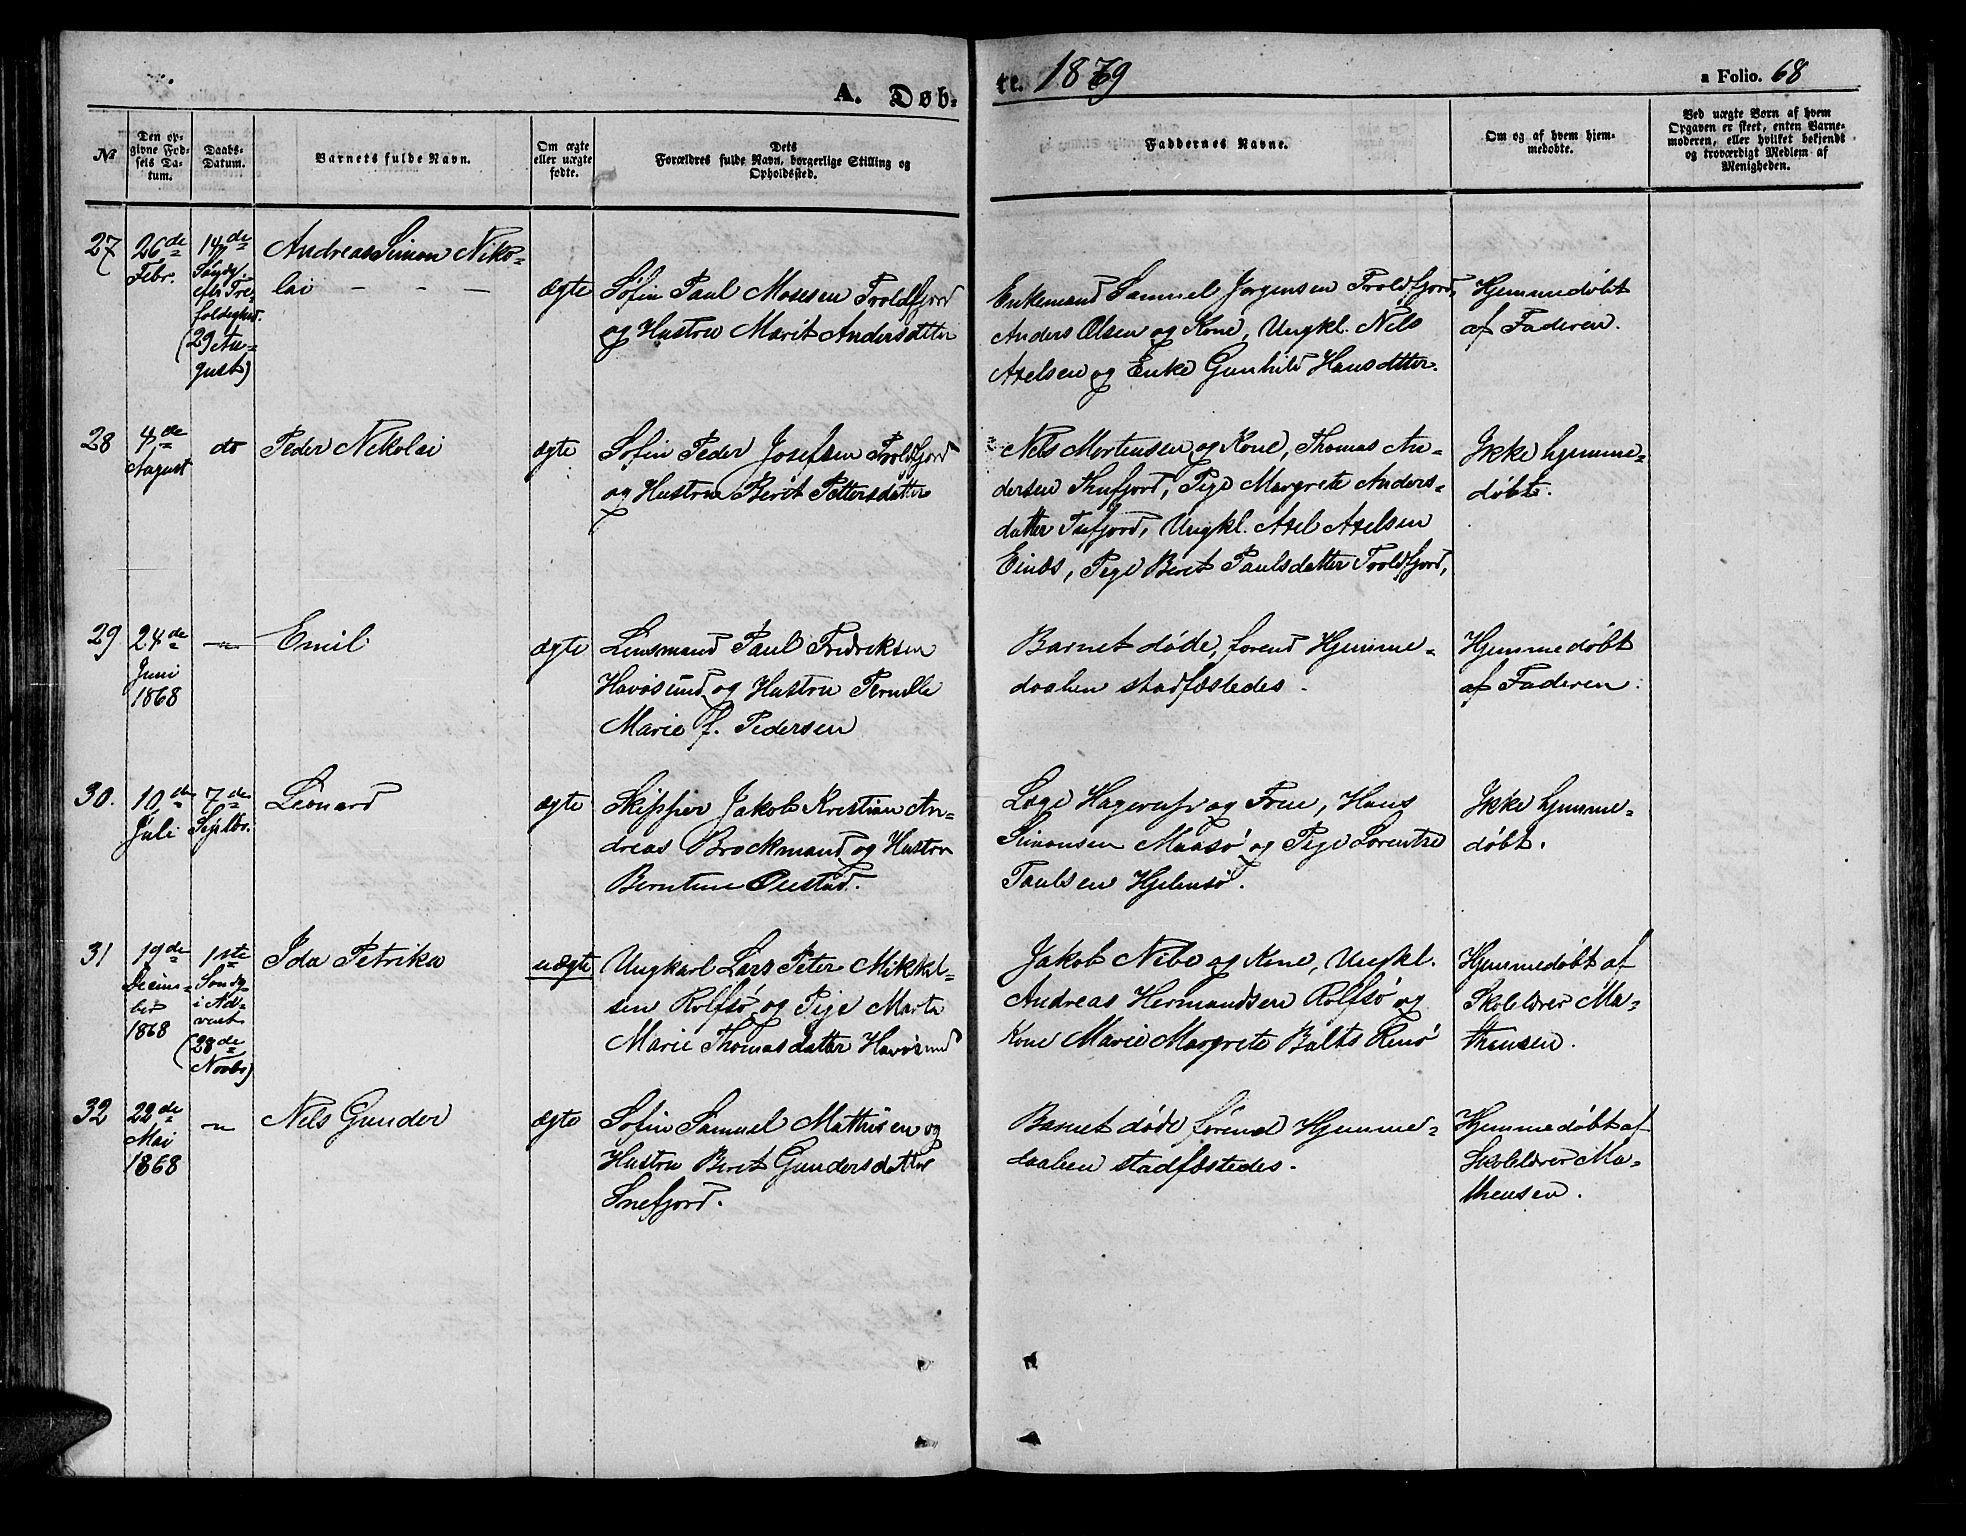 A. Døb-
te. 1869
a Folio. 68
No
Den op-
givne Fød-
sels Da-
tum.
Daabs-
Datum.
Barnets fulde Navn.
Om ægte
eller uægte
fødte.
Dets
Forældres fulde Navn, borgerlige Stilling og
Opholdssted.
Faddernes Navne.
Om og af hvem hjem-
medøbte.
Ved uægte Børn af hvem
Opgaven er skeet, enten Barne-
moderen, eller hvilket bekjendt
og troværdigt Medlem af
Menigheden.
27
26de
Febr.
14de
Søndg.
eft. Tre-
foldighed.
(29 Au-
gust)
Andreas Simon Niko-
lai - - -
ægte
Søfin Paul Mosesen Troldfjord
og Hustru Marit Andersdatter
Enkemand Samuel Jørgensen Troldfjord,
Anders Olsen og Kone, Ungkl. Nils
Axelsen og Enke Gunhild Hansdtter.
Hjemmedøbt
af Faderen.
28
4de
August
do
Peder Nikolai
ægte
Søfin Peder Josefsen Troldfjord
og Hustru Berit Pettersdatter
Nels Mortensen og Kone, Thomas An-
dersen Thufjord, Pige Margrete Anders-
datter Tufjord, Ungkl. Axel Axelsen
Einæs, Pige Beret Paulsdatter Troldfjord,
Ikke hjemme-
døbt.
29
24de
Juni
1868
-"-
Emil
ægte
Lensmand Paul Fredriksen
Havøsund og Hustru Pernille
Marie f. Pedersen
Barnet døde, førend Hjemme-
daaben stadfæstedes.
Hjemmedøbt
af Faderen.
30.
10de
Juli
7de
Septbr.
Leonard
ægte
Skipper Jakob Kristian An-
dreas Brockmand og Hustru
Berntine
Læge Hagerup og Frue, Hans
Simonsen Maasø og Pige Lorentze
Paulsen Hjelmsø.
Ikke hjemme-
døbt.
31
19de
Decem-
ber
1868
1ste
Søndg.
i Ad-
vent
(28de
Novbr)
Ida Petrika
uægte
Ungkarl Lars Peter Mikkel-
sen Rolfsø og Pige Marte
Marie Thomasdatter Havøsund
Jakob Nibe og Kone, Ungkl.
Andreas Hermandsen Rolfsø og
Kone Marie Margrete Balts Renø
Hjemmedøbt af
Skolelærer Ma-
thensen.
32
22de
Mai
1868
-"-
Nels Gunder
ægte
Søfin Samuel Mathisen og
Hustru Berit Gundersdatter
Snefjord.
Barnet døde førend Hjemme-
daaben stadfæstedes.
Hjemmedøbt af
Skolelærer Ma-
thensen.